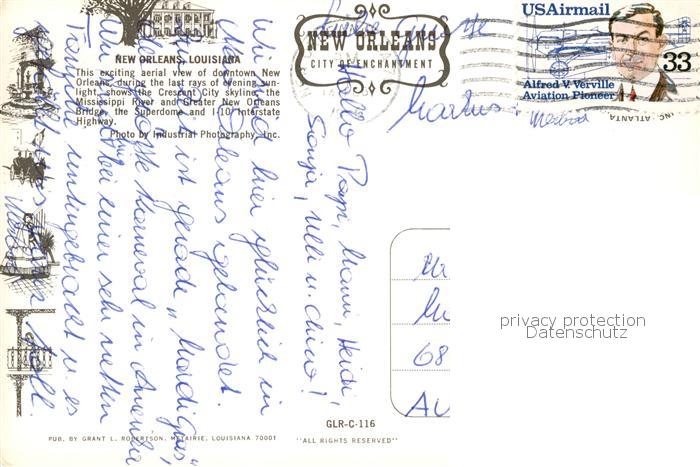 NEW ORLEANS, LOUISIANA
This exciting aerial view of downtown New
Orleans, during the last rays of evening sun-
light, shows the Crescent City skyline, the
Mississippi River and Greater New Orleans
Bridge, the Superdome and I-10 Interstate
Highway.
Photo by Industrial Photography, Inc.
NEW ORLEANS
CITY OF ENCHANTMENT
USAirmail
33
Alfred V. Verville
Aviation Pioneer
INC. ATLANTA
Markus
Hallo Papi, Mami, Heidi,
Sonja, Ulli u. Chino!
Wir sind hier glücklich in
New Orleans gelandet.
Hier ist gerade "Mardi gras",
der Karneval in Amerika
Wir sind bei einer sehr netten
untergebracht u. es
toll.
68
AU
privacy protection
Datenschutz
GLR-C-116
PUB. BY GRANT L. ROBERTSON, METAIRIE, LOUISIANA 70001
"ALL RIGHTS RESERVED"